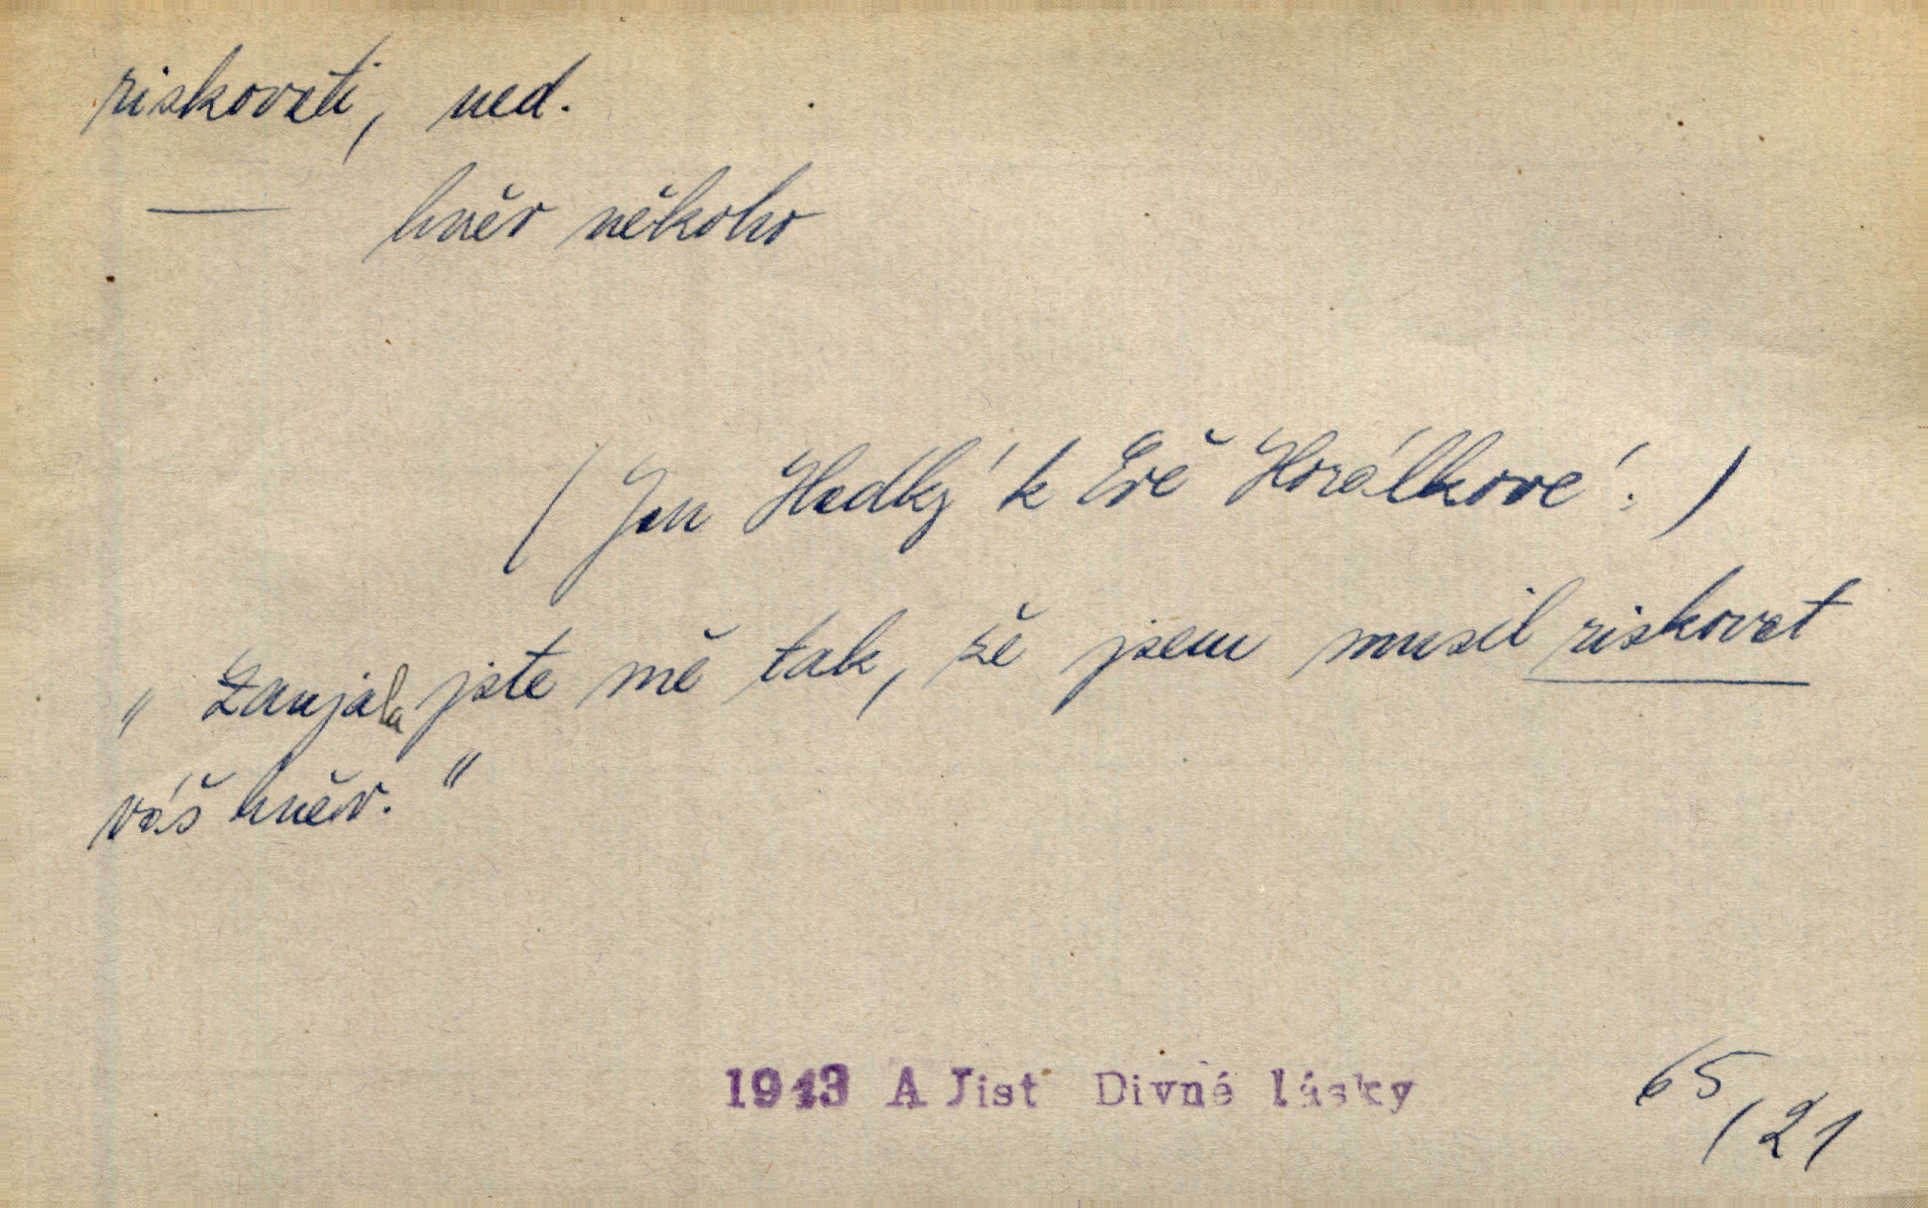 riskovati, ned.
— hněv někoho
( Jan Hladký k Evě Horálkové: )
„ Zaujala jste mě tak, že jsem musil riskovat
váš hněv. "
1943 A Jist Divné lásky 65/21